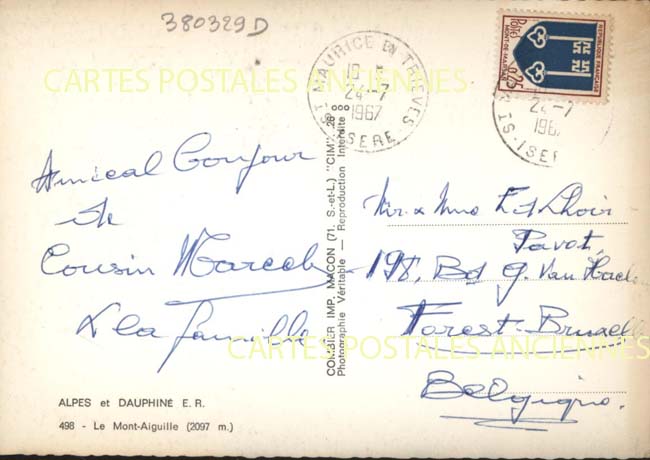 380329D
CARTES POSTALES ANCIENNES
ST MAURICE EN TRIEVES
10 -
24-7
1967
ISERE
REPUBLIQUE FRANCAISE
Postes 0,25
MONT-DE-MARSAN
24-7
1967
ISERE
Amical Bonjour
de
Cousin Marcel
& la famille
COMBIER IMP. MACON (71. S.-et-L.) "CIM"
Photographie Véritable — Reproduction Interdite
Mr. & Mme
Pavot,
198, Bd G. Van
Forest-Bruxelles
Belgique.
CARTES POSTALES ANCIENNES
ALPES et DAUPHINÉ E. R.
498 - Le Mont-Aiguille (2097 m.)